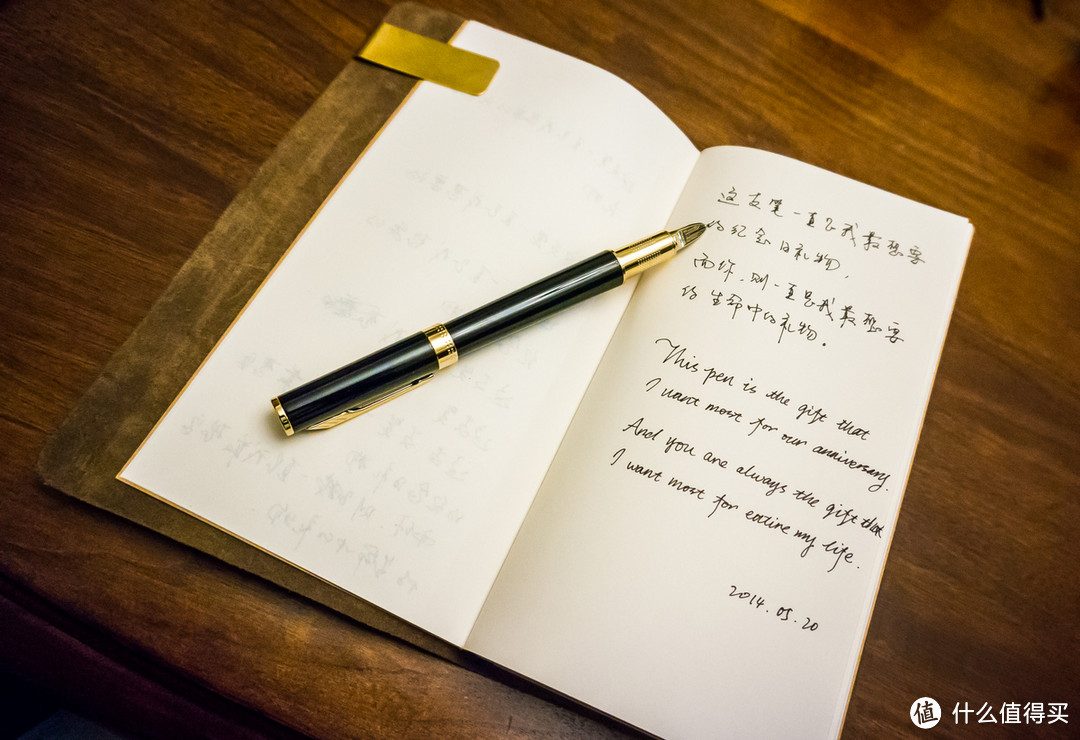 这支笔一直是我最想要
的纪念日礼物,
而你,则一直是我最想要
的生命中的礼物。
This pen is the gift that
I want most for our anniversary.
And you are always the gift that
I want most for entire my life.
2014.05.20
值 什么值得买